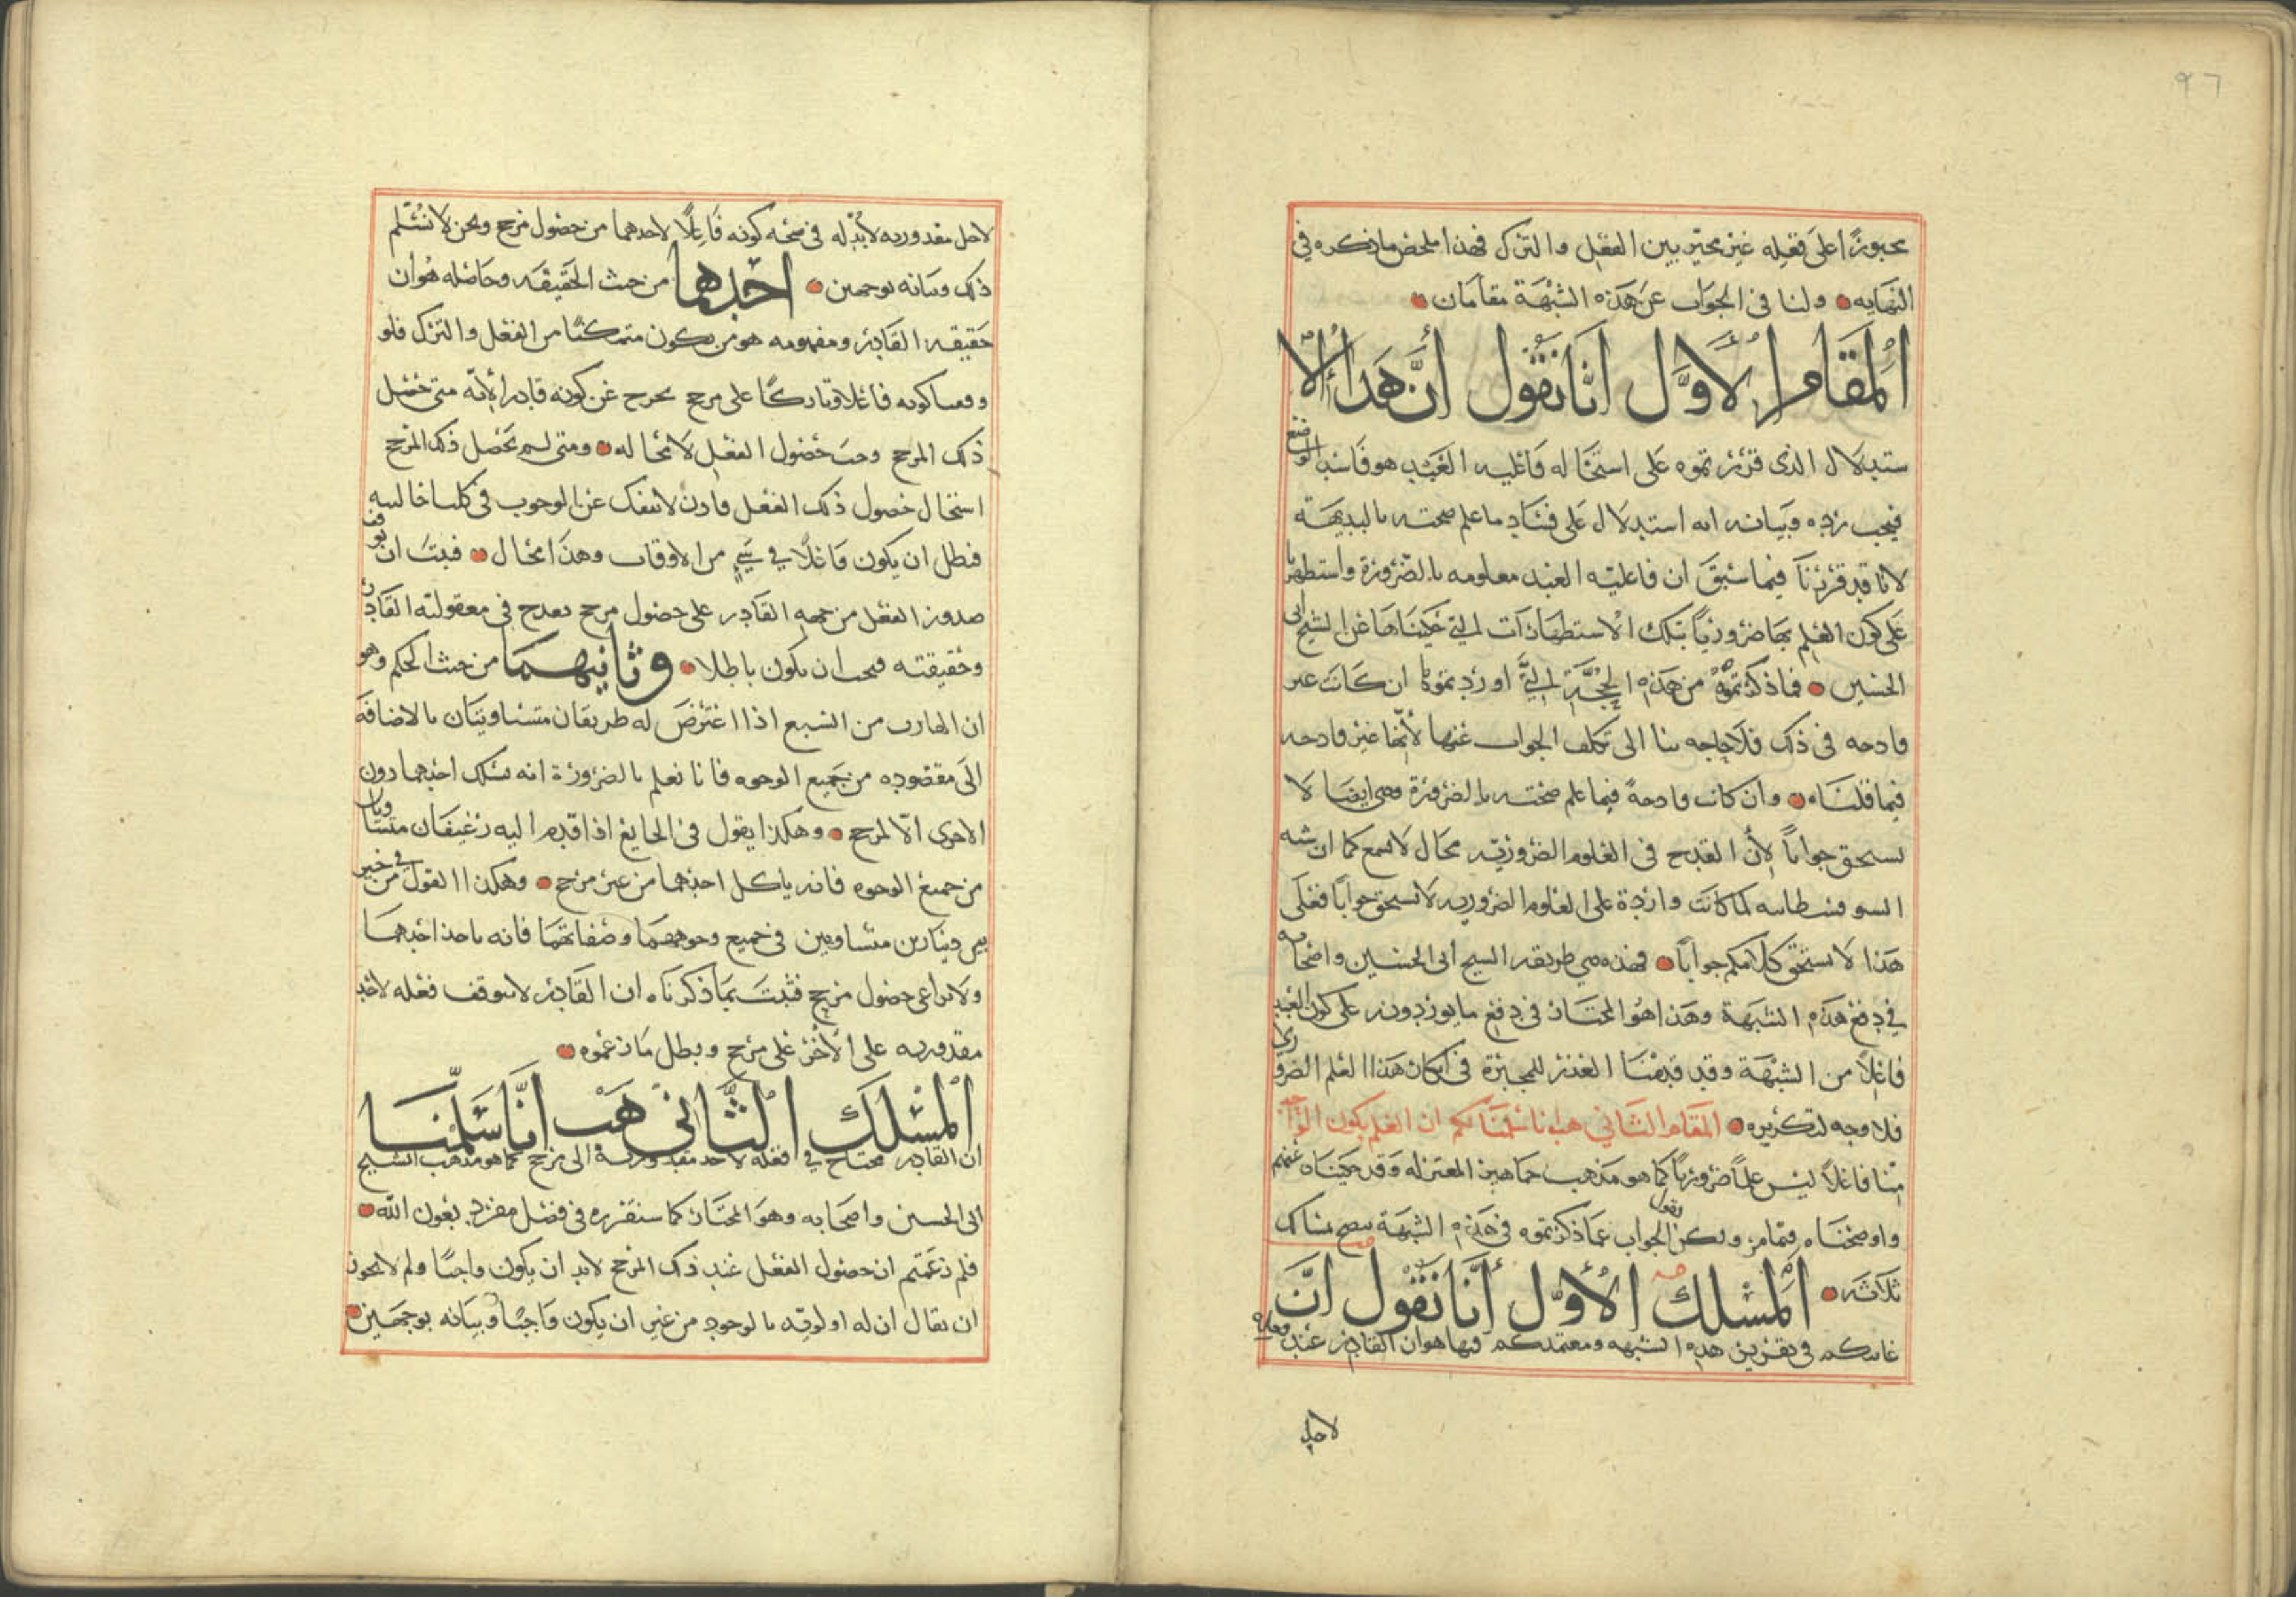 ٩٦
مجبورًا على فعله غير مخير بين الفعل والترك فهذا ملخص ما ذكره في
النهايه ولنا في الجواب عن هذه الشبهة مقامان
المقام الأول أنا نقول أن هذا الا
ستدلال الذى قررتموه على استحاله فاعليه العبد هو فاسد الوضع
فيجب رده وبيانه انه استدلال على فساد ما علم صحته بالبديهة
لانا قد قررنا فيما سبق ان فاعلية العبد معلومه بالضرورة واستظهرنا
على كون العلم بها ضروريًا بتلك الاستظهارات التي حكيناها عن الشيخ ابى
الحسين فما ذكرتموه من هذه الحجة التي اوردتموها ان كانت غير
قادحه في ذلك فلا حاجه بنا الى تكلف الجواب عنها لأنها غير قادحه
فيما قلناه وان كانت قادحةً فيما علم صحته بالضرورة فهى ايضا لا
تستحق جوابًا لأن القدح في العلوم الضرورية محال لا يسمع كما ان شبه
السوفسطاييه لما كانت واردة على العلوم الضروريه لا تستحق جوابًا فعلى
هذا لا يستحق كلامكم جوابًا فهذه هي طريقه الشيخ ابى الحسين واصحابه
في دفع هذه الشبهة وهذا هو المختار في دفع ما يوردونه على كون العبد
فاعلاً من الشبهة وقد قدمنا العذر للمجبرة في انكار هذا العلم الضروري
فلا وجه لتكريره المقام الثاني هب انا سلمنا لكم ان العلم بكون الواحد
منا فاعلاً ليس علمًا ضروريًا كما هو مذهب جماهير المعتزله وقد حكيناه عنهم
واوضحناه فيما مر ولكن نقول الجواب عما ذكرتموه في هذه الشبهة يتضح بمسالك
ثلاثه المسلك الأول أنا نقول ان
غايتكم في تقرير هذه الشبهه ومعتمدكم فيها هو ان القادر عند فعله
لاحد
لاحد مقدوريه لا بد له في صحه كونه فاعلًا لاحدهما من حصول مرجح ونحن لا نسلم
ذلك وبيانه بوجهين احدها من حيث الحقيقه وحاصله هو ان
حقيقه القادر ومفهومه هو من يكون متمكنًا من الفعل والترك فلو
وقفنا كونه فاعلا وتاركًا على مرجح لخرج عن كونه قادرا لأنه متى حصل
ذلك المرجح وجب حصول الفعل لا محاله ومتى لم يحصل ذلك المرجح
استحال حصول ذلك الفعل فاذن لا ينفك عن الوجوب في كلتا حالتيه
فبطل ان يكون فاعلًا في شيءٍ من الاوقات وهذا محال فثبت ان توقف
صدور الفعل من جهه القادر على حصول مرجح يقدح في معقولية القادر
وحقيقته فيجب ان يكون باطلا وثانيهما من حيث الحكم وهو
ان الهارب من السبع اذا اعترض له طريقان متساويتان بالاضافة
الى مقصوده من جميع الوجوه فانا نعلم بالضرورة انه يسلك احدهما دون
الاخرى الا لمرجح وهكذا يقول في الجايع اذا قدم اليه رغيفان متساويان
من جميع الوجوه فانه ياكل احدهما من غير مرجح وهكذا القول في من خير
بين دينارين متساويين في جميع وجوههما وصفاتهما فانه ياخذ احدهما
ولا يراعى حصول مرجح فثبت بما ذكرناه ان القادر لا يتوقف فعله لاحد
مقدوريه على الأخر على مرجح وبطل ما زعموه
المسلك الثاني هب أنا سلمنا
ان القادر محتاج في فعله لاحد مقدوريه الى مرجح كما هو مذهب الشيخ
ابى الحسين واصحابه وهو المختار كما سنقرره في فصل مفرد بعون الله
فلم زعمتم ان حصول الفعل عند ذلك المرجح لابد ان يكون واجبًا ولم لا يجوز
ان يقال ان له اولويه بالوجود من غير ان يكون واجبًا وبيانه بوجهين